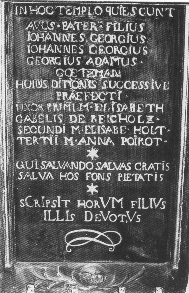 IN HOC TEMPLO QUIESCUNT
AVUS · PATER · FILIUS
IOHANNES GEORGIUS
IOHANNES GEORGIUS
GEORGIUS ADAMUS ·
GŒTZMAN
HUIUS DITIONIS SUCCESSIVE
PRAEFECTI
UXOR PRIMI M · ELISABETH
GABELIS DE REICHOLZ ·
SECUNDI M · ELISABE · HOLT ·
TERTII M · ANNA POIROT ·
QUI SALVANDO SALVAS GRATIS
SALVA HOS FONS PIETATIS
SCRIPSIT HORVM FILIVS
ILLIS DEVOTVS